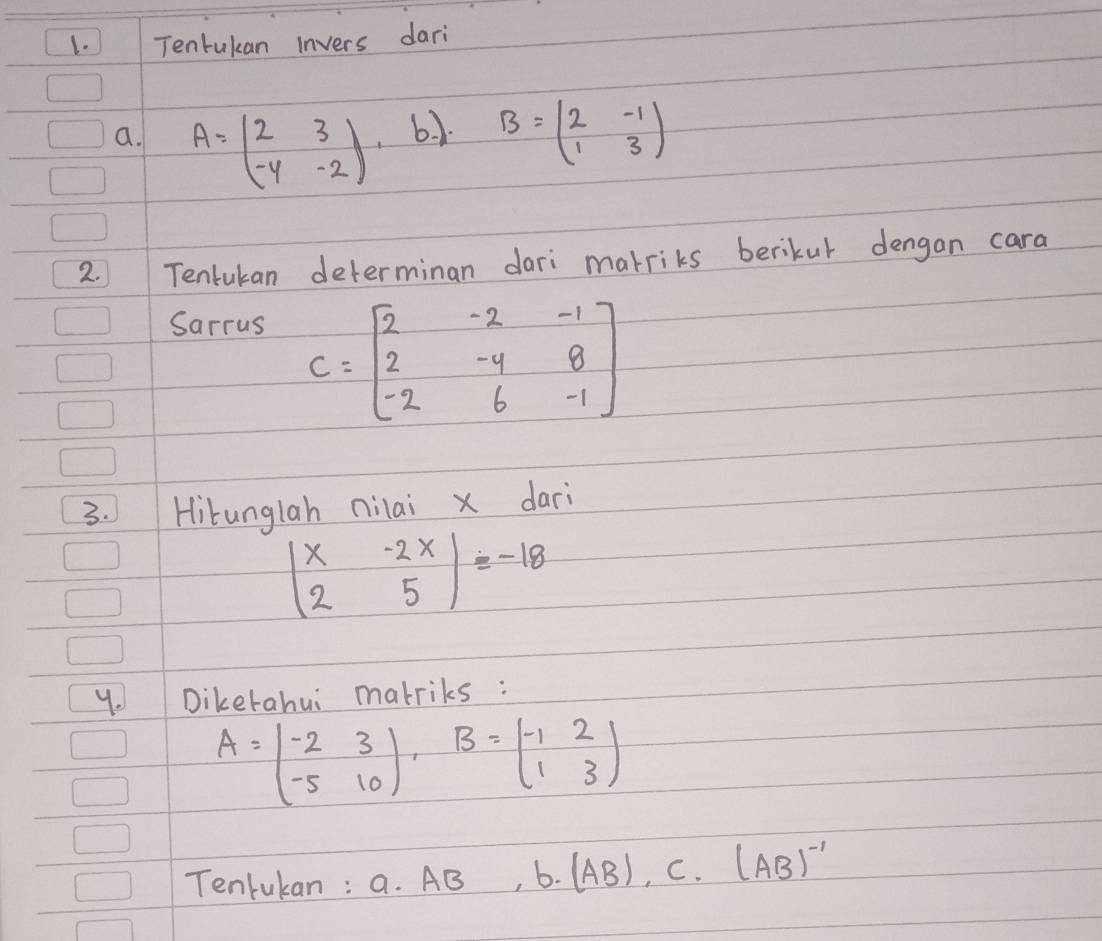 1. Tentukan invers dari
a. A = (2 3
-4 -2), b.). B = (2 -1
1 3)
2. Tentukan determinan dari matriks berikut dengan cara
Sarrus
C = [2 -2 -1
2 -4 8
-2 6 -1]
3. Hitunglah nilai x dari
(x -2x
2 5) = -18
4. Diketahui matriks :
A = (-2 3
-5 10), B = (-1 2
1 3)
Tentukan : a. AB , b. (AB), c. (AB)⁻¹